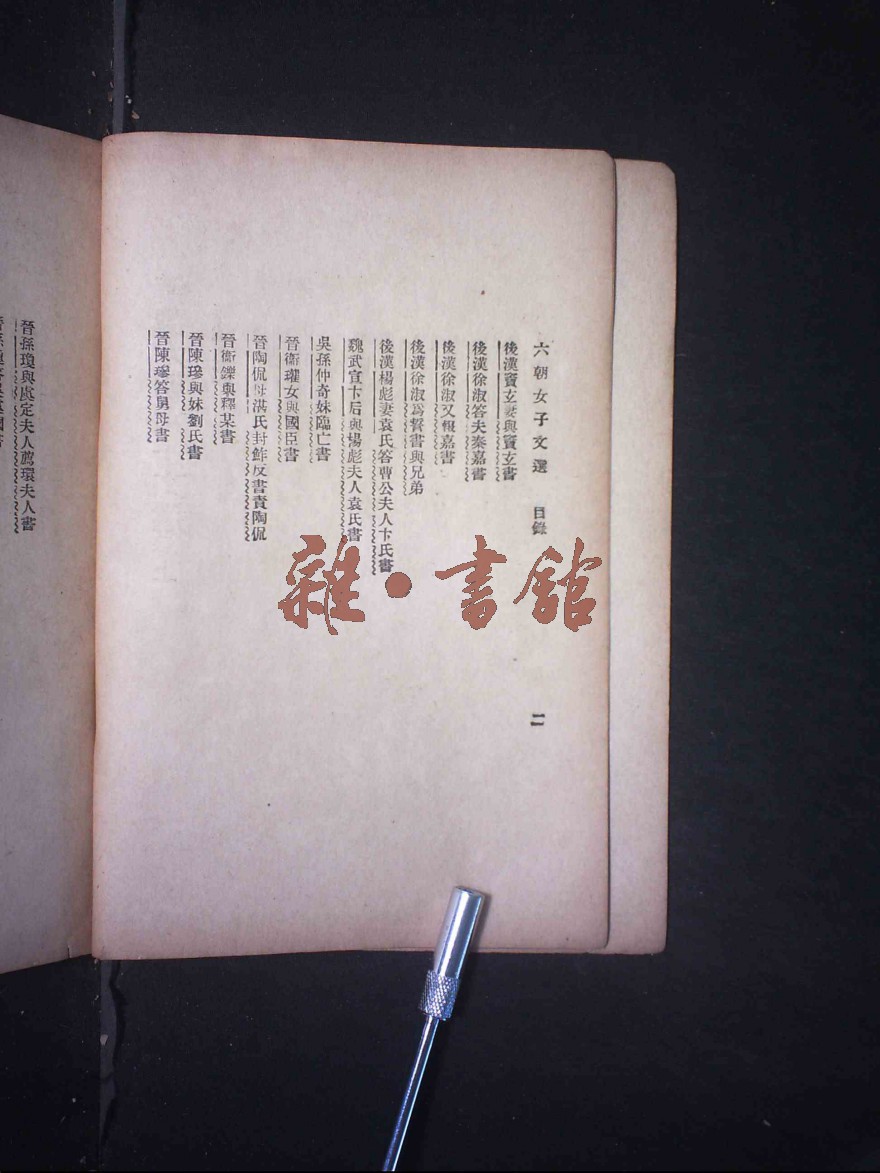 六朝女子文選 目錄 二
後漢竇玄妻與竇玄書
後漢徐淑答夫秦嘉書
後漢徐淑又報嘉書
後漢徐淑爲誓書與兄弟
後漢楊彪妻袁氏答曹公夫人卞氏書
魏武宣卞后與楊彪夫人袁氏書
吳孫仲奇妹臨亡書
晉衞瓘女與國臣書
晉陶侃母湛氏封鮓反書責陶侃
晉衞鑠與釋某書
晉陳㻸與妹劉氏書
晉陳㻸答舅母書
晉孫瓊與虞定夫人薦環夫人書
雜·書館